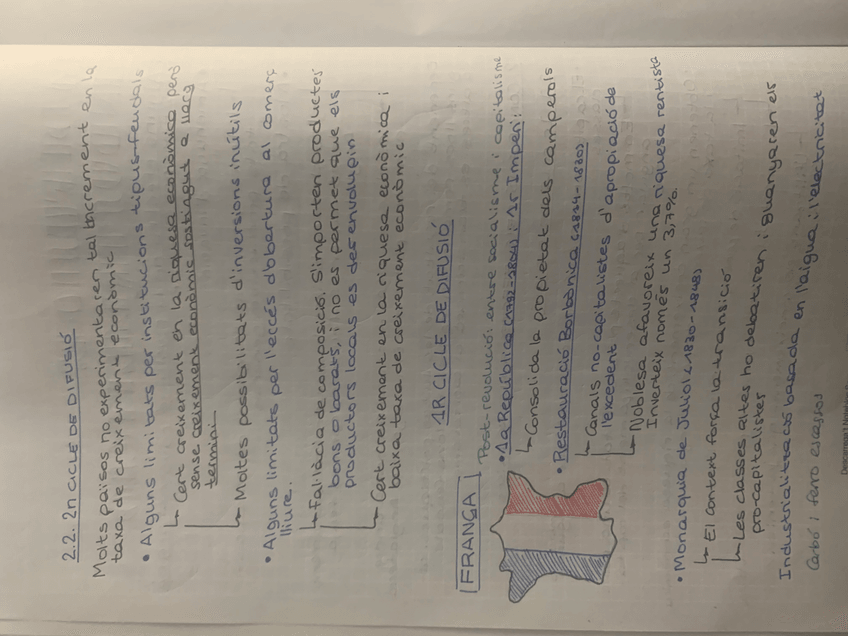 2.2. 2n CICLE DE DIFUSIÓ
Molts països no experimentaren tal increment en la
taxa de creixement econòmic
• Alguns limitats per institucions tipus-feudals
↳ Cert creixement en la riquesa econòmica però
sense creixement econòmic sostingut a llarg
termini
↳ Moltes possibilitats d'inversions inútils
• Alguns limitats per l'eccés d'obertura al comerç
lliure.
↳ Fal·làcia de composició. S'importen productes
bons o barats, i no es permet que els
productors locals es desenvolupin
↳ Cert creixement en la riquesa econòmica i
baixa taxa de creixement econòmic
1R CICLE DE DIFUSIÓ
FRANÇA
Post-revolució: entre socialisme i capitalisme
• 1a República (1792-1804) i 1r Imperi:
↳ Consolida la propietat dels camperols
• Restauració Borbònica (1814-1830)
↳ Canals no-capitalistes d'apropiació de
l'excedent
↳ Noblesa afavoreix una riquesa rentista
Inverteix només un 3,7%.
• Monarquia de Juliol (1830-1848)
↳ El context força la transició
↳ Les classes altes ho debatiren i guanyaren els
pro-capitalistes
Industrialització basada en l'aigua i l'electricitat
Carbó i ferro escassos